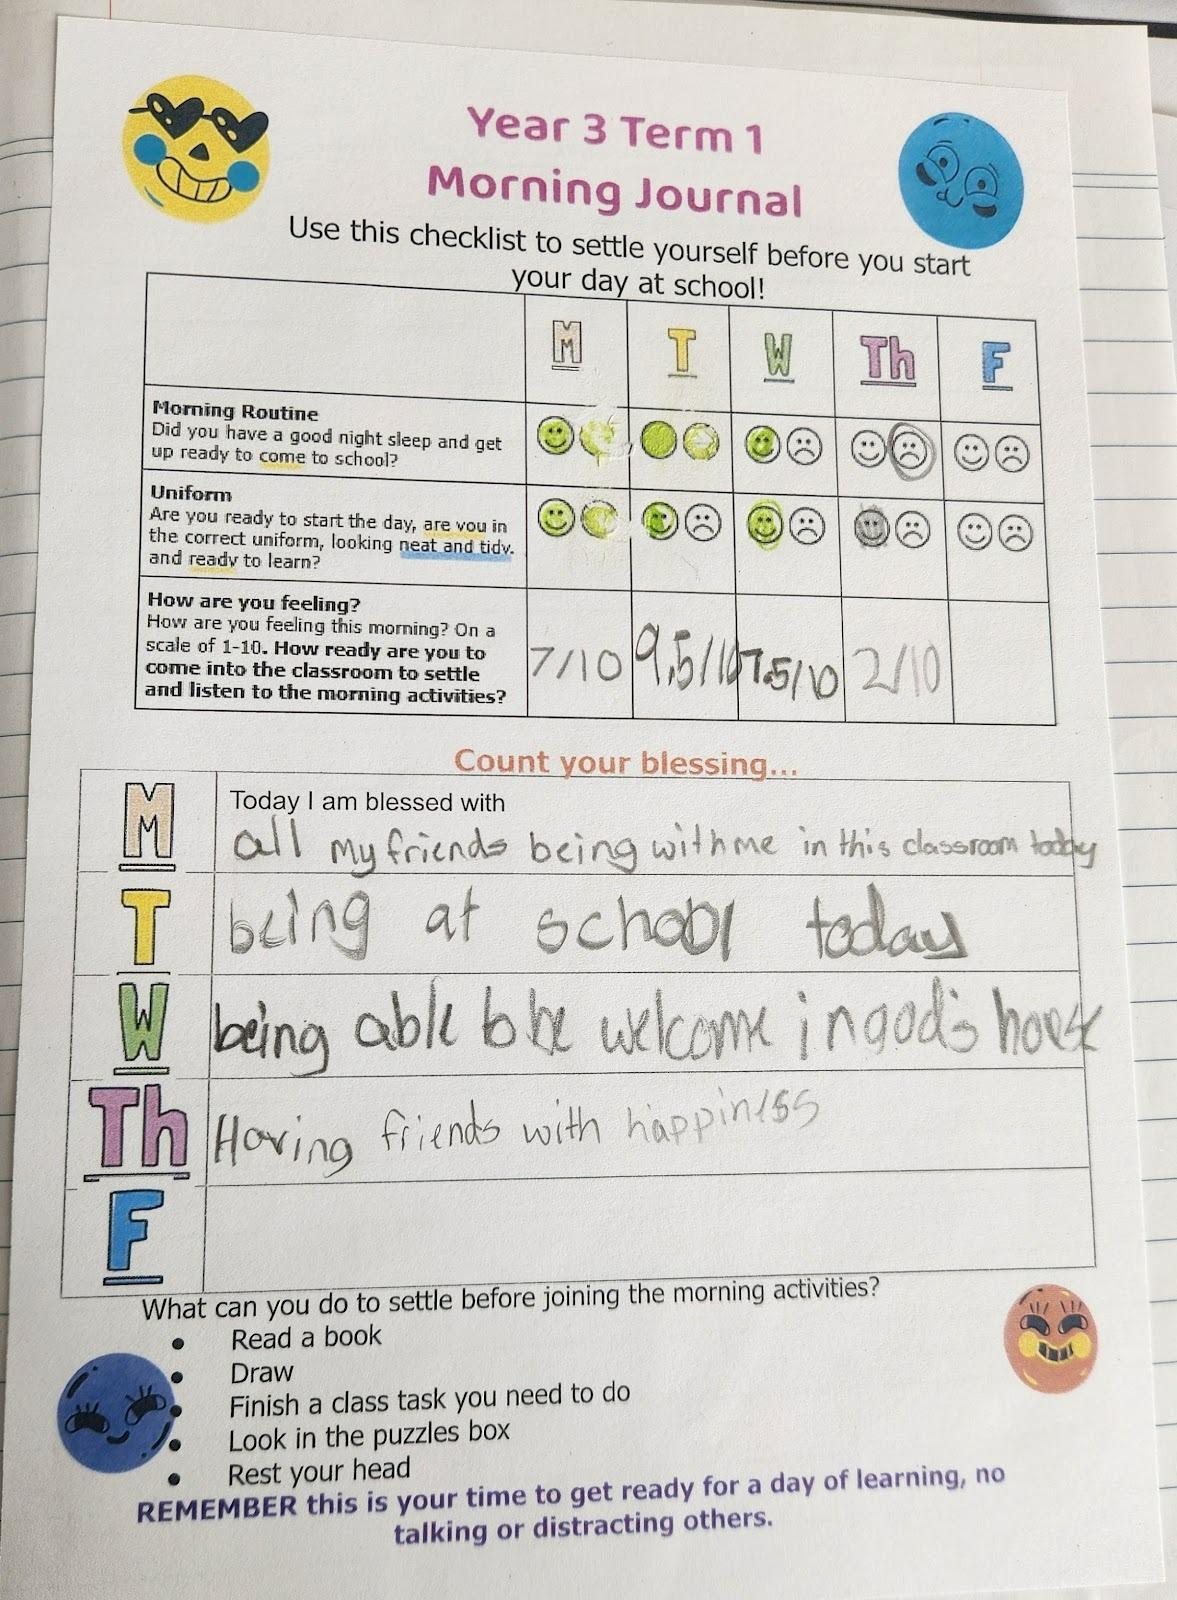 Year 3 Term 1
Morning Journal
Use this checklist to settle yourself before you start
your day at school!
M T W Th F
Morning Routine
Did you have a good night sleep and get
up ready to come to school?
Uniform
Are you ready to start the day, are you in
the correct uniform, looking neat and tidy.
and ready to learn?
How are you feeling?
How are you feeling this morning? On a
scale of 1-10. How ready are you to
come into the classroom to settle
and listen to the morning activities?
7/10 9.5/10 7.5/10 2/10
Count your blessing...
M
Today I am blessed with
all my friends being with me in this classroom today
T
being at school today
W
being able to be welcome in god's house
Th
Having friends with happiness
F
What can you do to settle before joining the morning activities?
• Read a book
• Draw
• Finish a class task you need to do
• Look in the puzzles box
• Rest your head
REMEMBER this is your time to get ready for a day of learning, no
talking or distracting others.